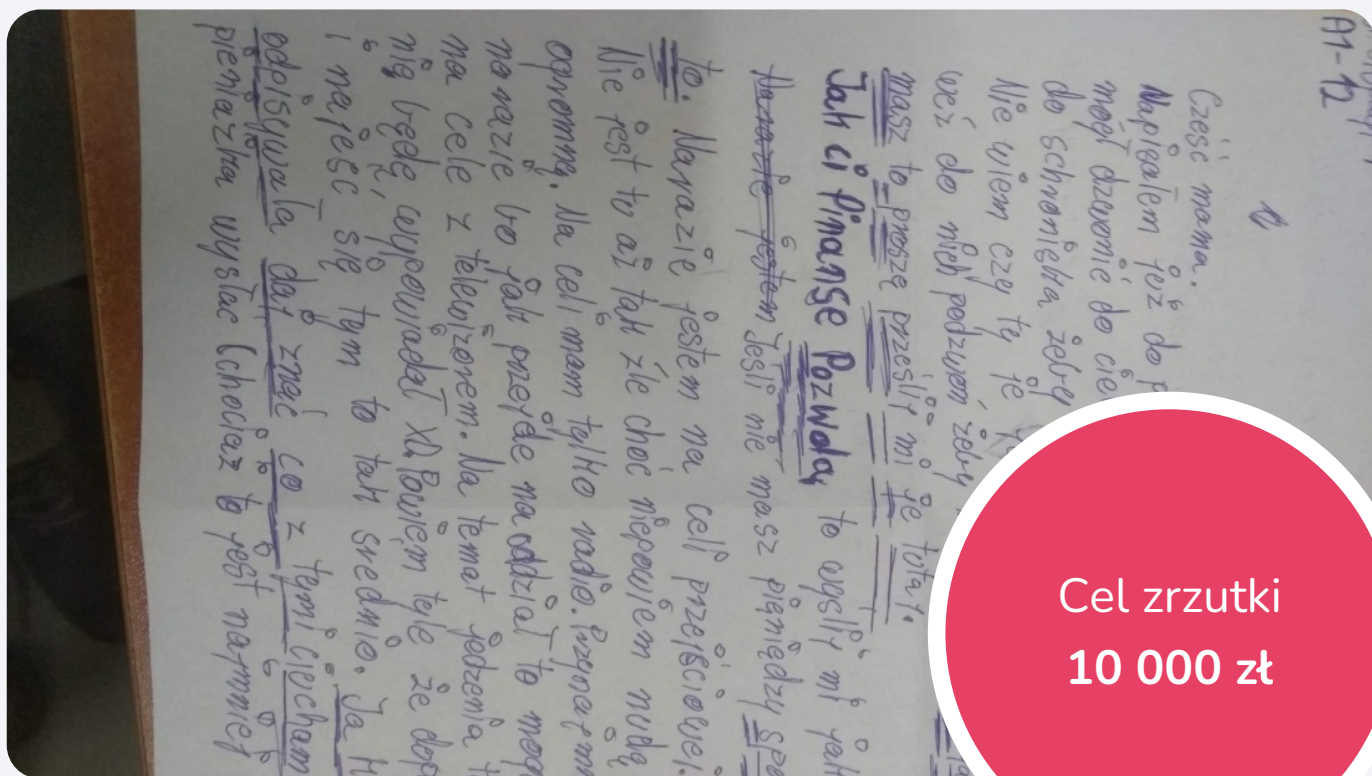 A1-12
Cześć mama.
Napisałem już do
mógł dzwonić do
do schroniska żeby
Nie wiem czy ty je
weź do nich podzwoń żeby
masz to proszę prześlij mi je tutaj.
Jak ci finanse Pozwolą to wyślij mi
Narazie jestem Jeśli nie masz pieniędzy
to. Narazie jestem na celi przejściowej.
Nie jest to aż tak źle choć niepowiem nudą
ogromną. Na celi mam tylko radio.
narazie bo jak przejde na oddział to
na cele z telewizorem. Na temat jedzenia
nie będę wypowiadał XD Powiem tyle że
i najeść się tym to tak srednio. Ja
odpisywała daj znać co z tymi
pieniążka wysłac (chociaż to jest najmniej
Cel zrzutki
10 000 zł